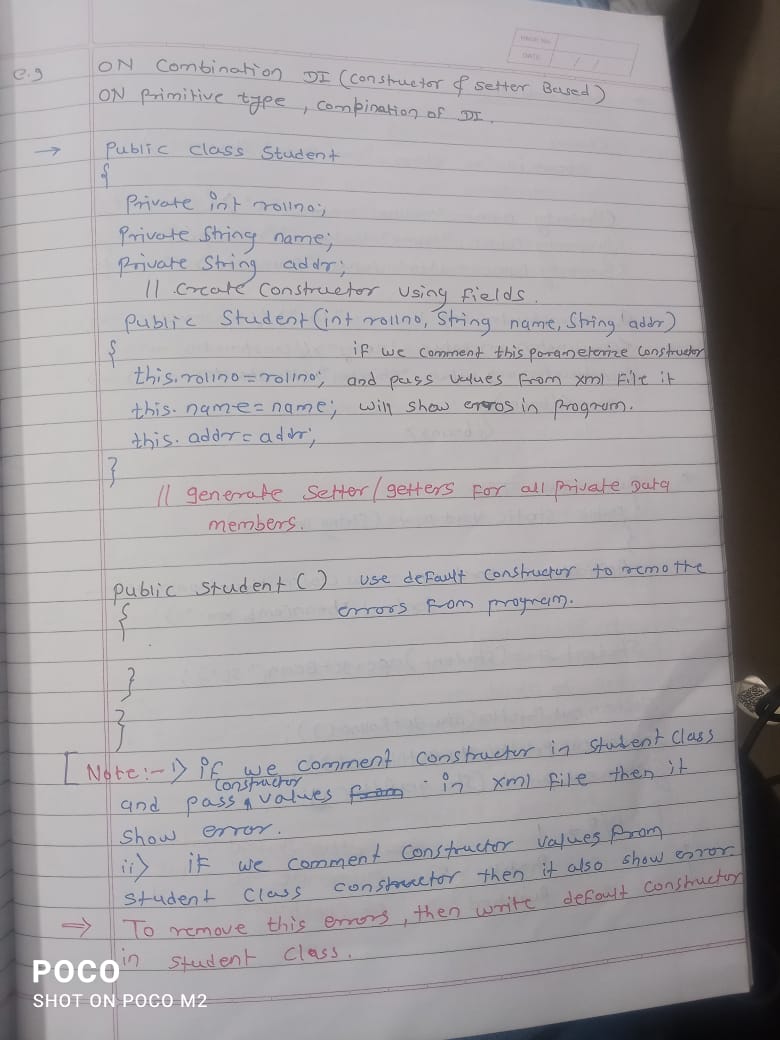 PAGE NO.
DATE / /
e.g ON Combination DI (constructor & setter Based)
ON primitive type, combination of DI.
→ Public class Student
{
Private int rollno;
Private String name;
Private String addr;
// Create constructor using fields.
public Student(int rollno, String name, String addr)
{ if we comment this parameterize constructor
this.rollno=rollno; and pass values from xml file it
this.name=name; will show erros in program.
this.addr=addr;
}
// generate setter/getters for all private data
members.
public student() use default constructor to remo the
{ errors from program.
}
}
[Note:- i) if we comment constructor in student class
constructor
and pass values from in xml file then it
show error.
ii) if we comment constructor values from
student class constructor then it also show error.
⇒ To remove this errors, then write default constructor
in student class.
POCO
SHOT ON POCO M2